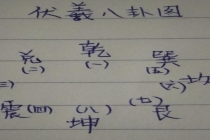 伏羲八卦图
兑 乾 巽
(二) (一) (五)
(三) (六)坎
震(四) (八) (七)艮
坤